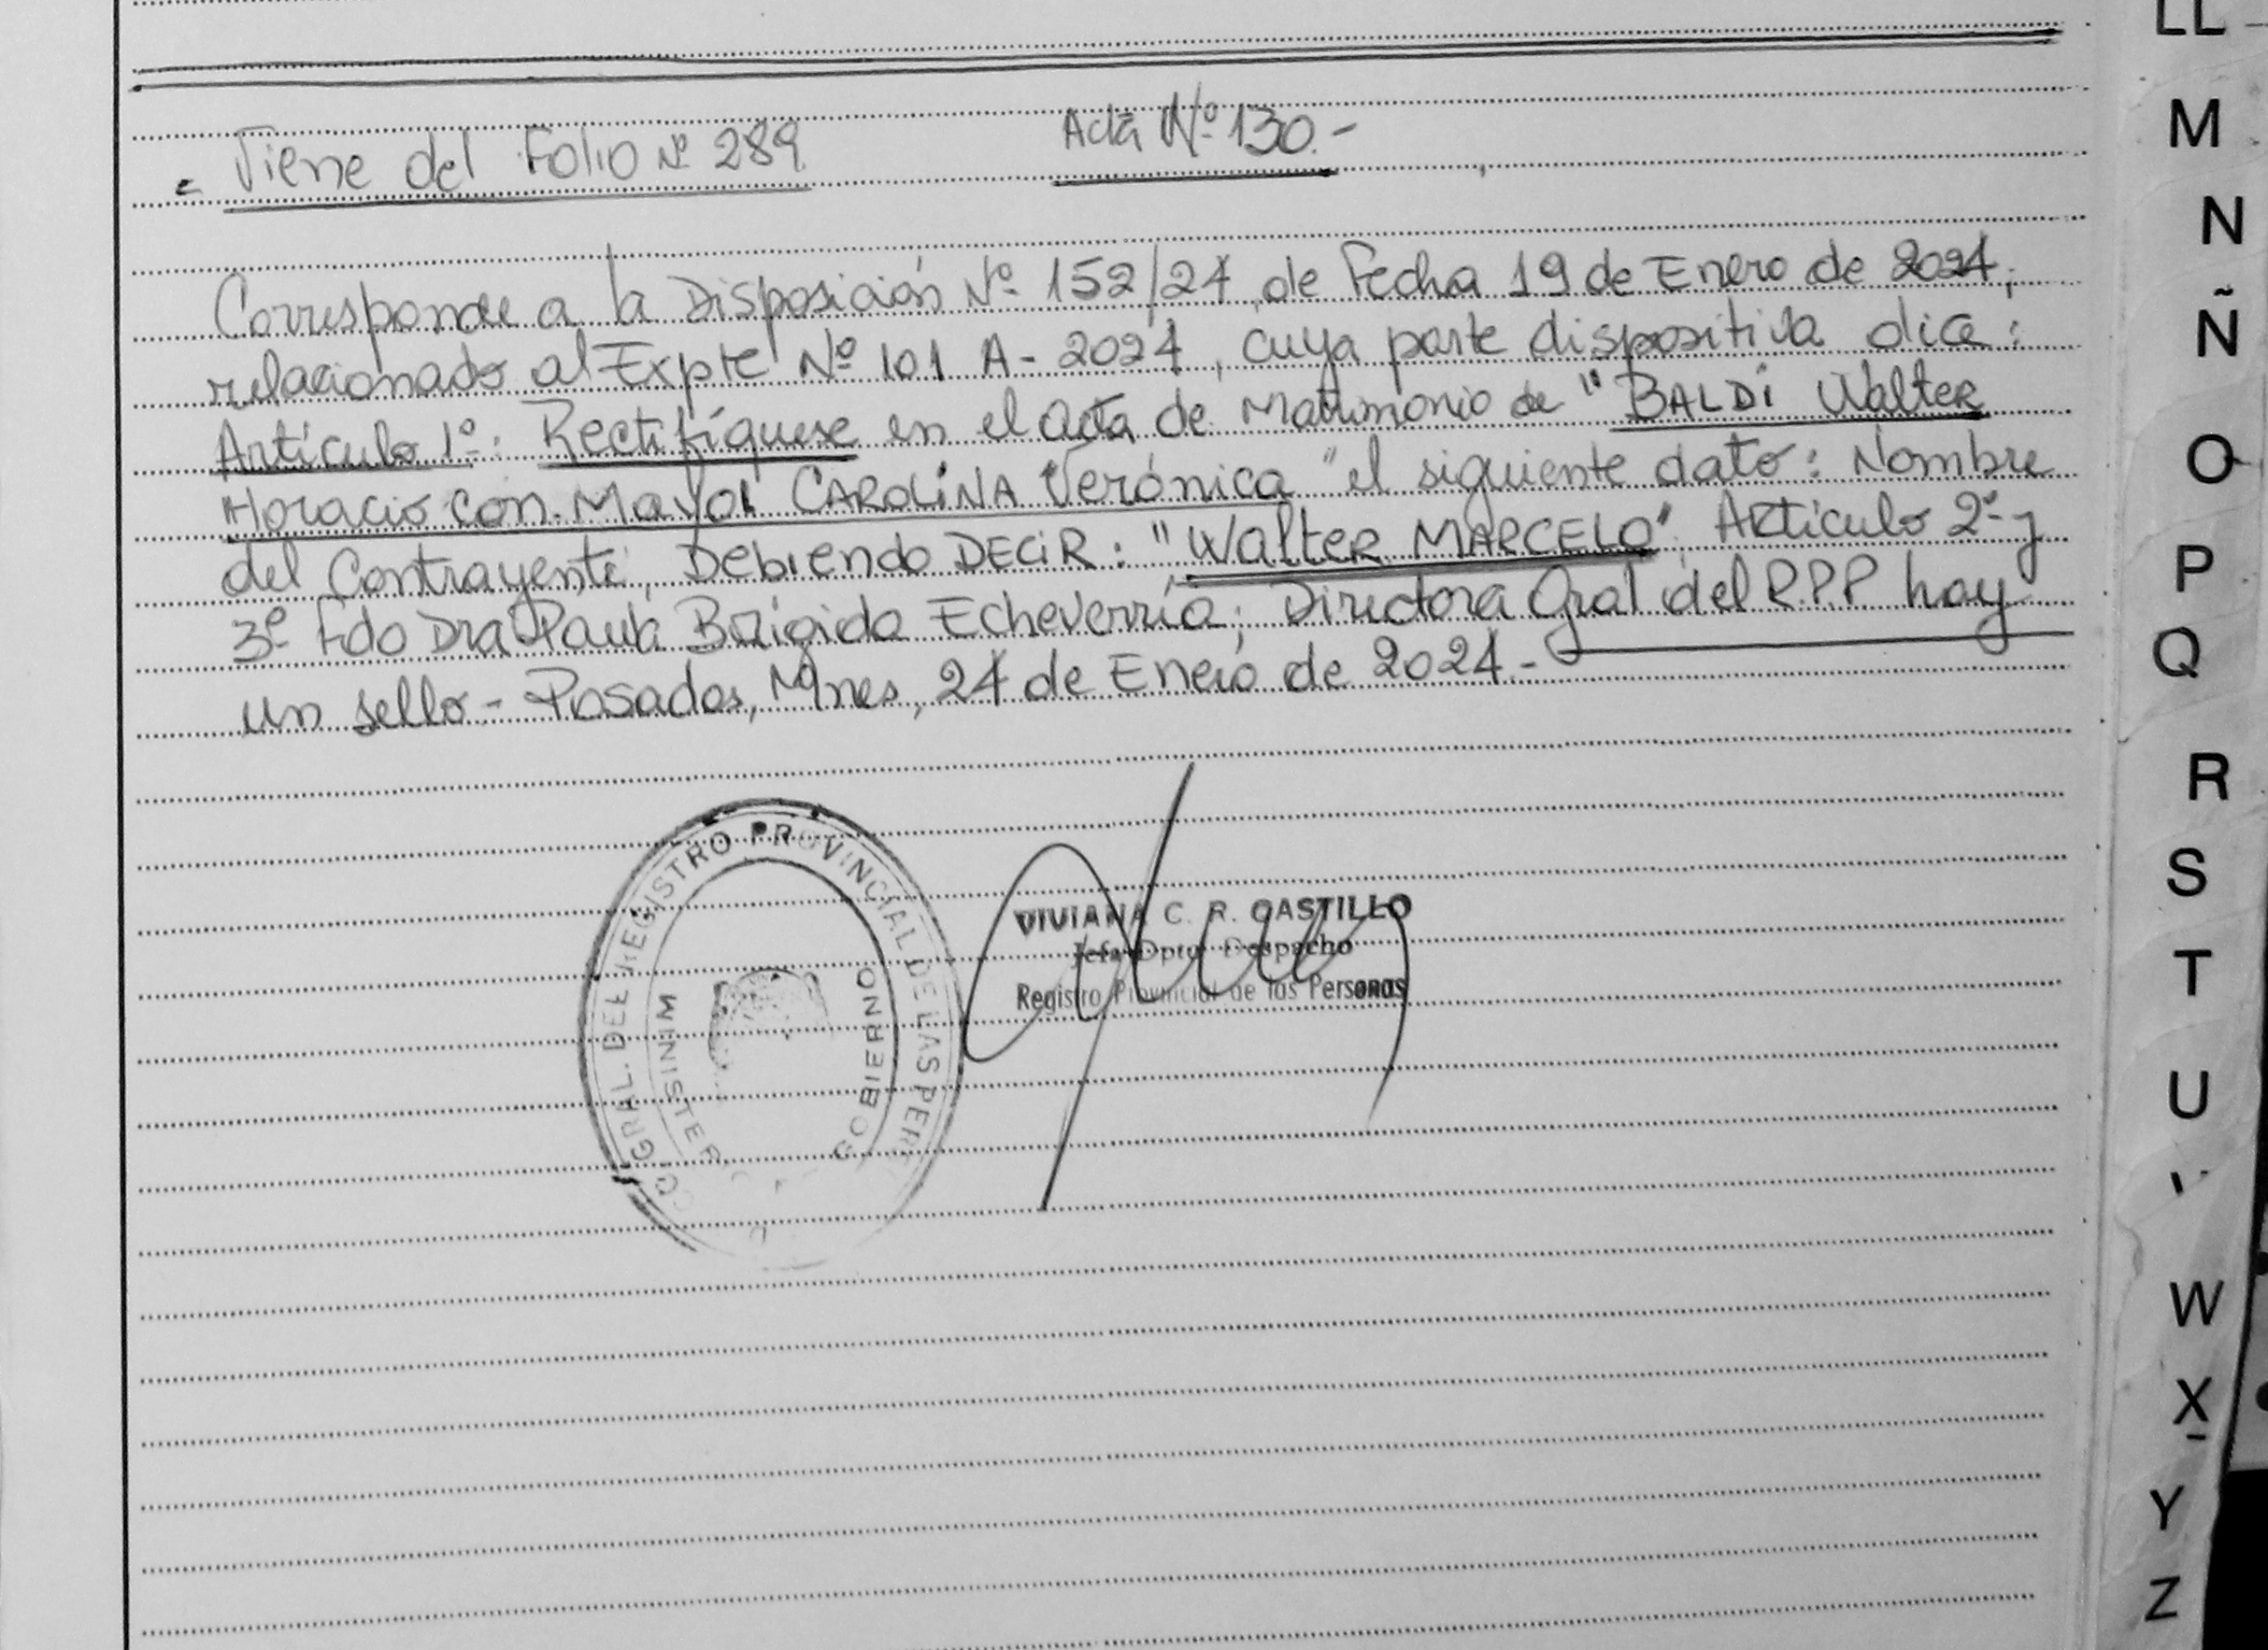 Viene del Folio Nº 289 Acta Nº 130.-
Corresponde a la Disposición Nº 152/24, de Fecha 19 de Enero de 2024;
relacionado al Expte Nº 101 A-2024, cuya parte dispositiva dice:
Artículo 1º: Rectifíquese en el acta de Matrimonio de "BALDI Walter
Horacio con MAYOL CAROLINA Verónica" el siguiente dato: Nombre
del Contrayente, Debiendo DECIR: "Walter MARCELO". Artículo 2º y
3º Fdo Dra Paula Brígida Echeverría; Directora Gral del R.P.P hay
un sello - Posadas, Mnes, 24 de Enero de 2024.-
GRAL. DEL REGISTRO PROVINCIAL DE LAS PER
MINISTE GOBIERNO
VIVIANA C. R. CASTILLO
Jefa Dpto Despacho
Registro Provincial de las Personas
LL
M
N
Ñ
O
P
Q
R
S
T
U
W
X
Y
Z